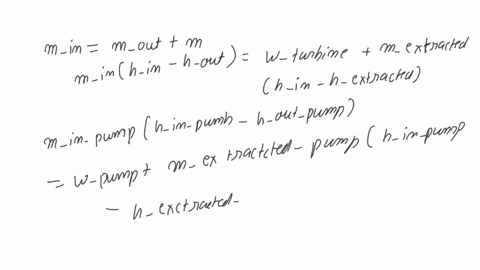 m_in = m_out + m
m_in (h_in - h_out) = w_turbine + m_extracted
(h_in - h_extracted)
m_in_pump (h_in_pumb - h_out_pump)
= w_pump + m_ex tractcted_ pump (h_in_pump
- h_exctracted_